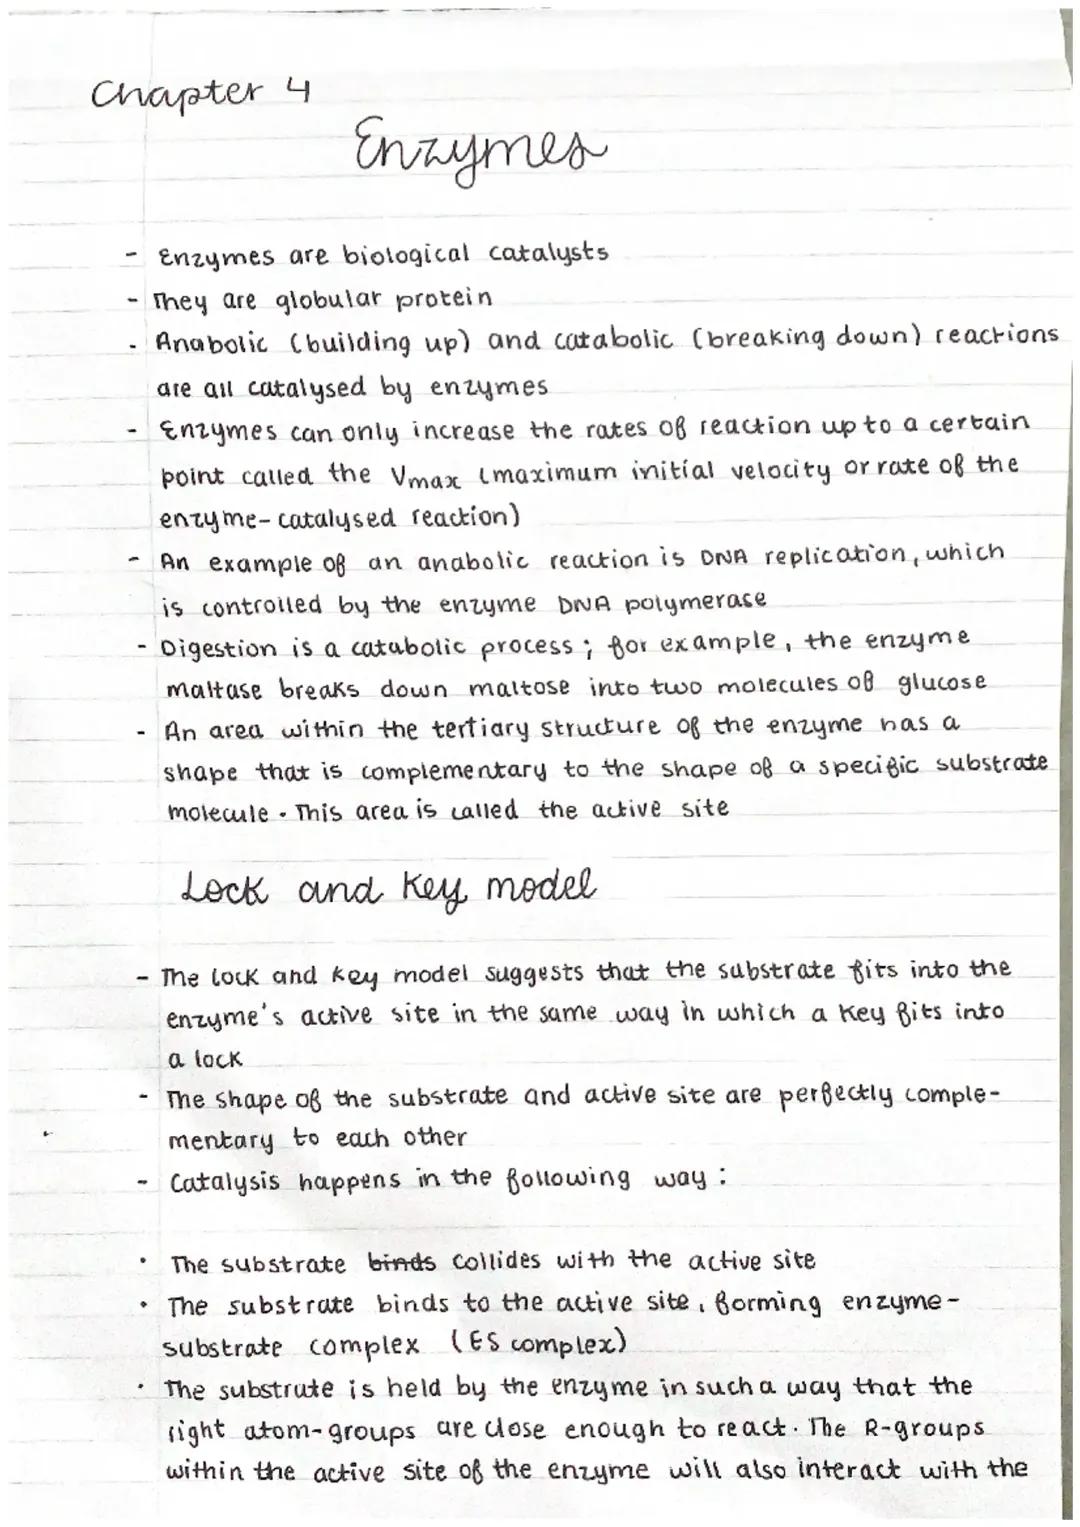 Chapter 4
Enzymes
- Enzymes are biological catalysts
- They are globular protein
- Anabolic (building up) and catabolic (breaking down) reactions
are all catalysed by enzymes
- Enzymes can only increase the rates of reaction up to a certain
point called the Vmax (maximum initial velocity or rate of the
enzyme-catalysed reaction)
- An example of an anabolic reaction is DNA replication, which
is controlled by the enzyme DNA polymerase
- Digestion is a catabolic process; for example, the enzyme
maltase breaks down maltose into two molecules of glucose
- An area within the tertiary structure of the enzyme has a
shape that is complementary to the shape of a specific substrate
molecule. This area is called the active site
Lock and key model
- The lock and key model suggests that the substrate fits into the
enzyme's active site in the same way in which a key fits into
a lock
- The shape of the substrate and active site are perfectly comple-
mentary to each other
- Catalysis happens in the following way:
• The substrate binds collides with the active site
• The substrate binds to the active site, forming enzyme-
substrate complex (ES complex)
• The substrate is held by the enzyme in such a way that the
right atom-groups are close enough to react. The R-groups
within the active site of the enzyme will also interact with the